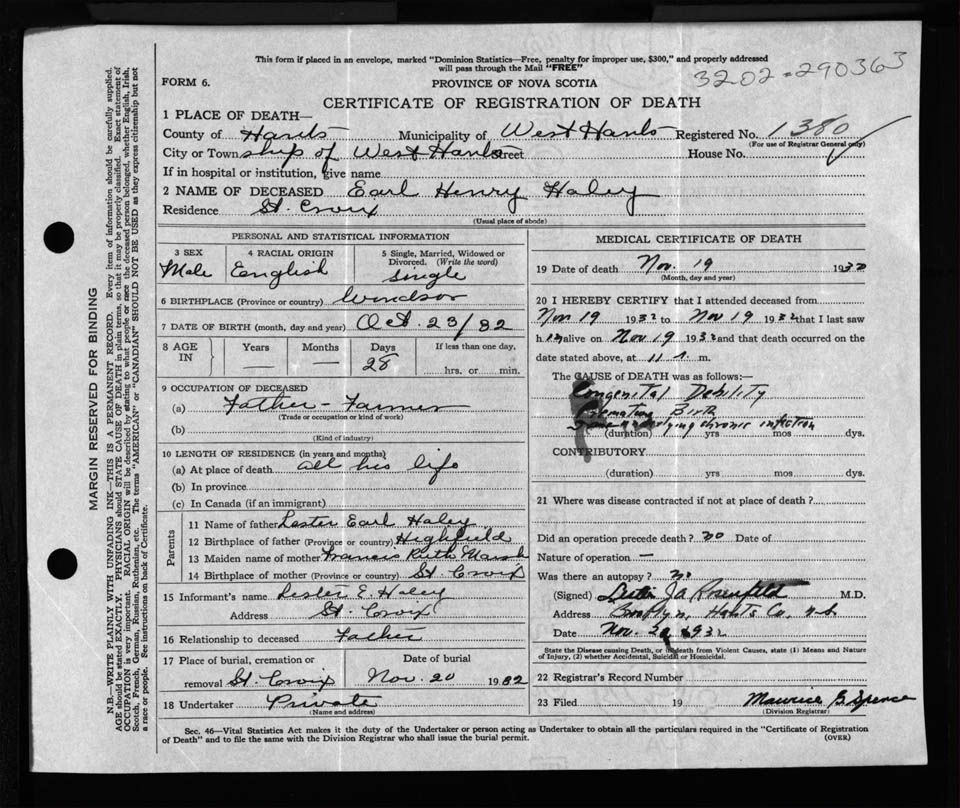 This form if placed in an envelope, marked "Dominion Statistics—Free, penalty for improper use, $300," and properly addressed
will pass through the Mail "FREE"
3202-290363
FORM 6.
PROVINCE OF NOVA SCOTIA
CERTIFICATE OF REGISTRATION OF DEATH
1 PLACE OF DEATH—
County of Hants Municipality of West Hants Registered No. 1380
(For use of Registrar General only)
City or Township of West Hants Street House No.
If in hospital or institution, give name
2 NAME OF DECEASED Earl Henry Haley
Residence St. Croix
(Usual place of abode)
PERSONAL AND STATISTICAL INFORMATION
3 SEX 4 RACIAL ORIGIN 5 Single, Married, Widowed or Divorced. (Write the word)
Male English Single
6 BIRTHPLACE (Province or country) Windsor
7 DATE OF BIRTH (month, day and year) Oct. 23/32
8 AGE IN Years Months Days If less than one day,
— — 28 hrs. or min.
9 OCCUPATION OF DECEASED
(a) Father - Farmer
(Trade or occupation or kind of work)
(b)
(Kind of industry)
10 LENGTH OF RESIDENCE (in years and months)
(a) At place of death all his life
(b) In province
(c) In Canada (if an immigrant)
Parents
11 Name of father Lester Earl Haley
12 Birthplace of father (Province or country) Highfield
13 Maiden name of mother Francis Ruth Marsh
14 Birthplace of mother (Province or country) St. Croix
15 Informant's name Lester E. Haley
Address St. Croix
16 Relationship to deceased Father
17 Place of burial, cremation or removal Date of burial
St. Croix Nov. 20 1932
18 Undertaker Private
(Name and address)
MEDICAL CERTIFICATE OF DEATH
19 Date of death Nov. 19 1932
(Month, day and year)
20 I HEREBY CERTIFY that I attended deceased from
Nov 19 1932 to Nov 19 1932 that I last saw
him alive on Nov 19 1932 and that death occurred on the
date stated above, at 11 m.
The CAUSE of DEATH was as follows:—
Congenital Debility
Premature Birth
underlying chronic infection
(duration) yrs mos dys.
CONTRIBUTORY
(duration) yrs mos dys.
21 Where was disease contracted if not at place of death?
Did an operation precede death? no Date of
Nature of operation —
Was there an autopsy? no
(Signed) Lester JA Rosenfeld M.D.
Address Brooklyn, Hants Co, N.S.
Date Nov. 20 1932
State the Disease causing Death, or in death from Violent Causes, state (1) Means and Nature
of Injury, (2) whether Accidental, Suicidal or Homicidal.
22 Registrar's Record Number
23 Filed 19 Maurice B. Spence
(Division Registrar)
Sec. 46—Vital Statistics Act makes it the duty of the Undertaker or person acting as Undertaker to obtain all the particulars required in the "Certificate of Registration
of Death" and to file the same with the Division Registrar who shall issue the burial permit.
(OVER)
MARGIN RESERVED FOR BINDING
N.B.—WRITE PLAINLY WITH UNFADING INK—THIS IS A PERMANENT RECORD. Every item of information should be carefully supplied.
AGE should be stated EXACTLY. PHYSICIANS should STATE CAUSE OF DEATH in plain terms, so that it may be properly classified. Exact statement of
OCCUPATION is very important. RACIAL ORIGIN will be described by stating to what people or race the deceased person belonged, whether English, Irish,
Scotch, French, German, Russian, Ruthenian, etc. The terms "AMERICAN" or "CANADIAN" SHOULD NOT BE USED as they express citizenship but not
a race or people. See instructions on back of Certificate.